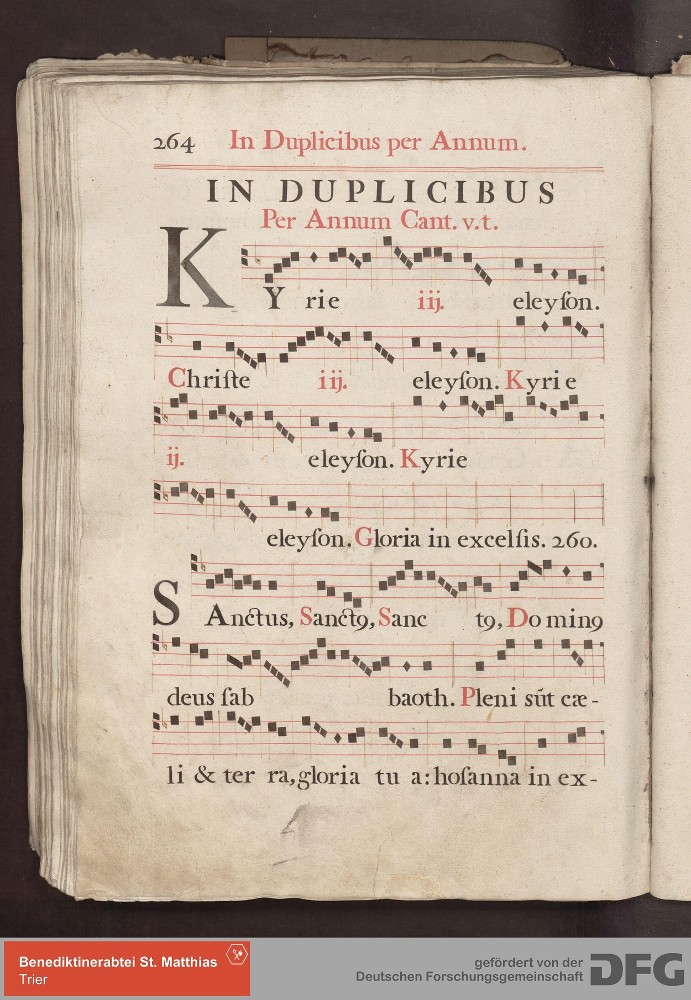 264 In Duplicibus per Annum.
IN DUPLICIBUS
Per Annum Cant. v.t.
KYrie iij. eleyſon.
Chriſte iij. eleyſon. Kyrie
ij. eleyſon. Kyrie
eleyſon. Gloria in excelſis. 260.
SAnctus, Sanctꝯ, Sanctꝯ, Dominꝯ
deus ſabbaoth. Pleni sūt cæ-
li & terra, gloria tua: hoſanna in ex-
Benediktinerabtei St. Matthias
Trier
gefördert von der
Deutschen Forschungsgemeinschaft
DFG